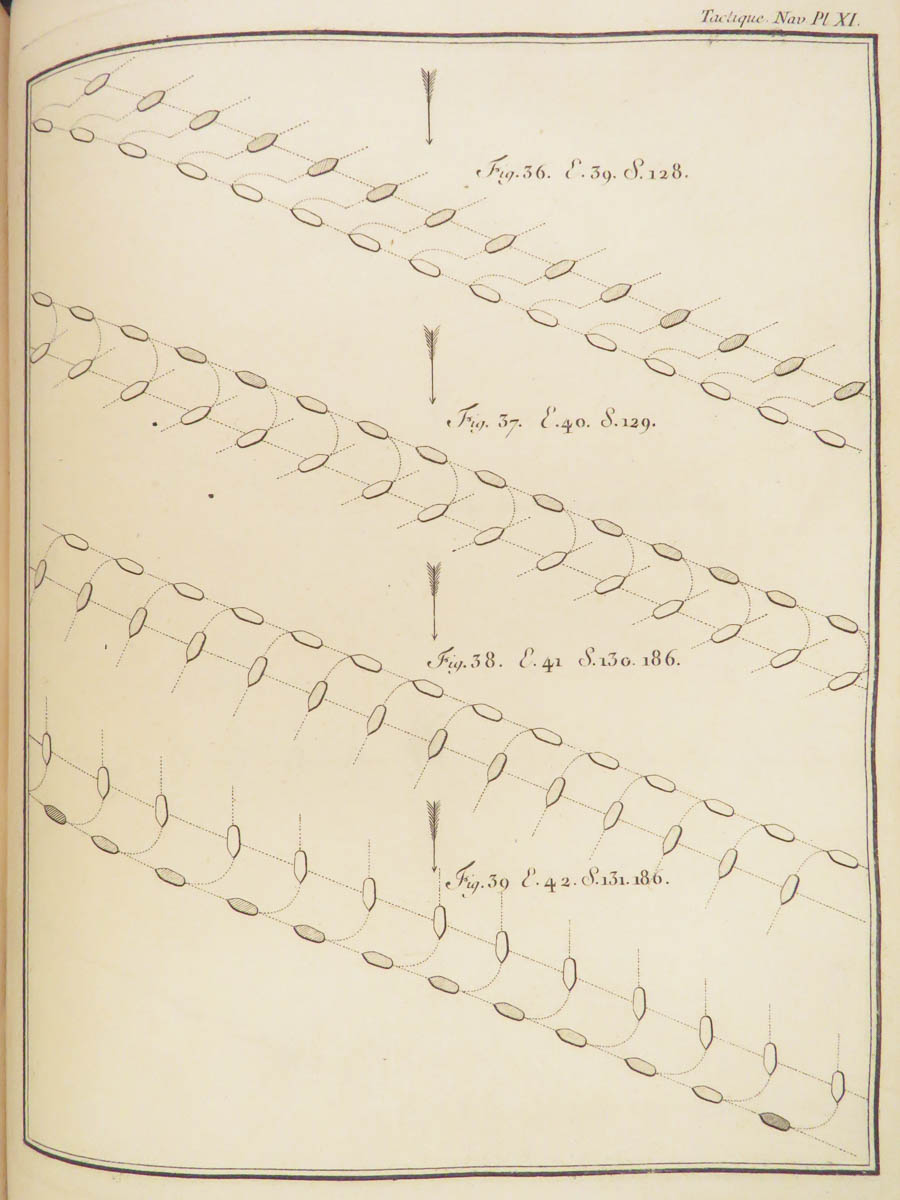 Tactique. Nav Pl XI.
Fig. 36. E. 39. S. 128.
Fig. 37. E. 40. S. 129.
Fig. 38. E. 41 S. 130. 186.
Fig. 39 E. 42. S. 131. 186.